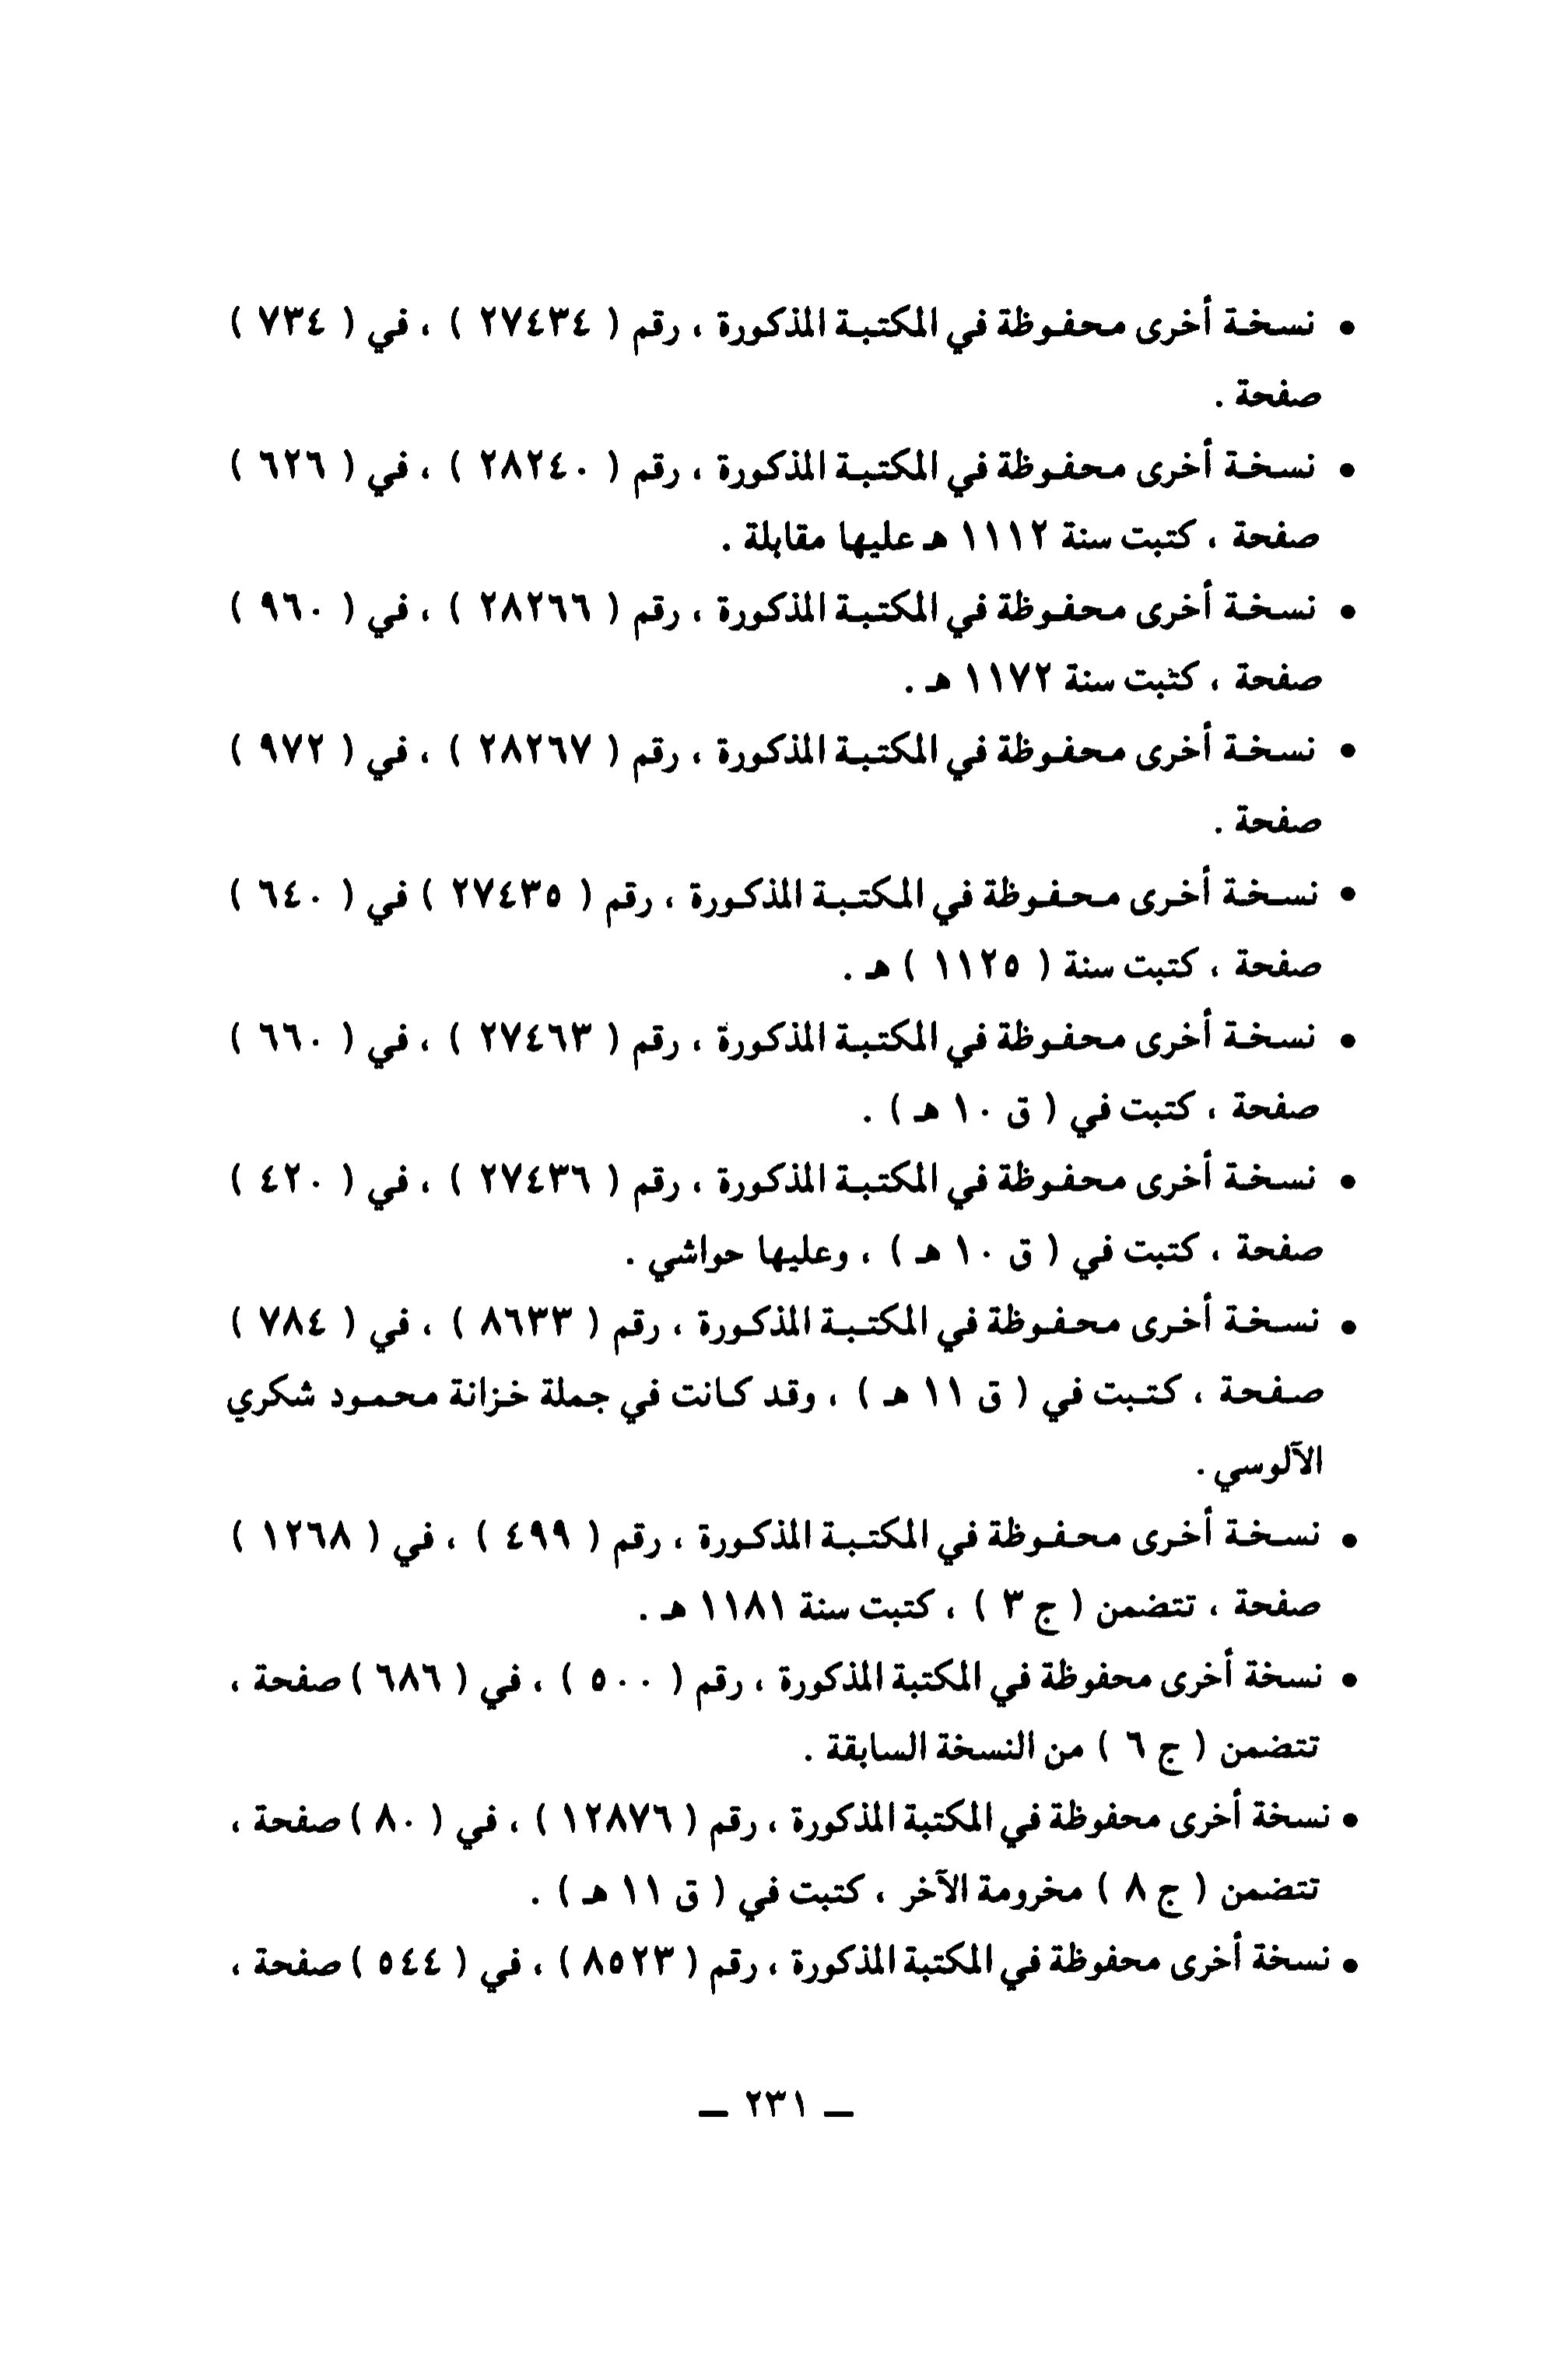 • نسخة أخرى محفوظة في المكتبة المذكورة ، رقم ( ٢٧٤٣٤ ) ، في ( ٧٣٤ )
صفحة .
• نسخة أخرى محفوظة في المكتبة المذكورة ، رقم ( ٢٨٢٤٠ ) ، في ( ٦٢٦ )
صفحة ، كتبت سنة ١١١٢ هـ عليها مقابلة .
• نسخة أخرى محفوظة في المكتبة المذكورة ، رقم ( ٢٨٢٦٦ ) ، في ( ٩٦٠ )
صفحة ، كتبت سنة ١١٧٢ هـ .
• نسخة أخرى محفوظة في المكتبة المذكورة ، رقم ( ٢٨٢٦٧ ) ، في ( ٩٧٢ )
صفحة .
• نسخة أخرى محفوظة في المكتبة المذكورة ، رقم ( ٢٧٤٣٥ ) في ( ٦٤٠ )
صفحة ، كتبت سنة ( ١١٢٥ ) هـ .
• نسخة أخرى محفوظة في المكتبة المذكورة ، رقم ( ٢٧٤٦٣ ) ، في ( ٦٦٠ )
صفحة ، كتبت في ( ق ١٠ هـ ) .
• نسخة أخرى محفوظة في المكتبة المذكورة ، رقم ( ٢٧٤٣٦ ) ، في ( ٤٢٠ )
صفحة ، كتبت في ( ق ١٠ هـ ) ، وعليها حواشي .
• نسخة أخرى محفوظة في المكتبة المذكورة ، رقم ( ٨٦٣٣ ) ، في ( ٧٨٤ )
صفحة ، كتبت في ( ق ١١ هـ ) ، وقد كانت في جملة خزانة محمود شكري
الآلوسي .
• نسخة أخرى محفوظة في المكتبة المذكورة ، رقم ( ٤٩٩ ) ، في ( ١٢٦٨ )
صفحة ، تتضمن ( ج ٣ ) ، كتبت سنة ١١٨١ هـ .
• نسخة أخرى محفوظة في المكتبة المذكورة ، رقم ( ٥٠٠ ) ، في ( ٦٨٦ ) صفحة ،
تتضمن ( ج ٦ ) من النسخة السابقة .
• نسخة أخرى محفوظة في المكتبة المذكورة ، رقم ( ١٢٨٧٦ ) ، في ( ٨٠ ) صفحة ،
تتضمن ( ج ٨ ) مخرومة الآخر ، كتبت في ( ق ١١ هـ ) .
• نسخة أخرى محفوظة في المكتبة المذكورة ، رقم ( ٨٥٢٣ ) ، في ( ٥٤٤ ) صفحة ،
ــ ٢٣١ ــ